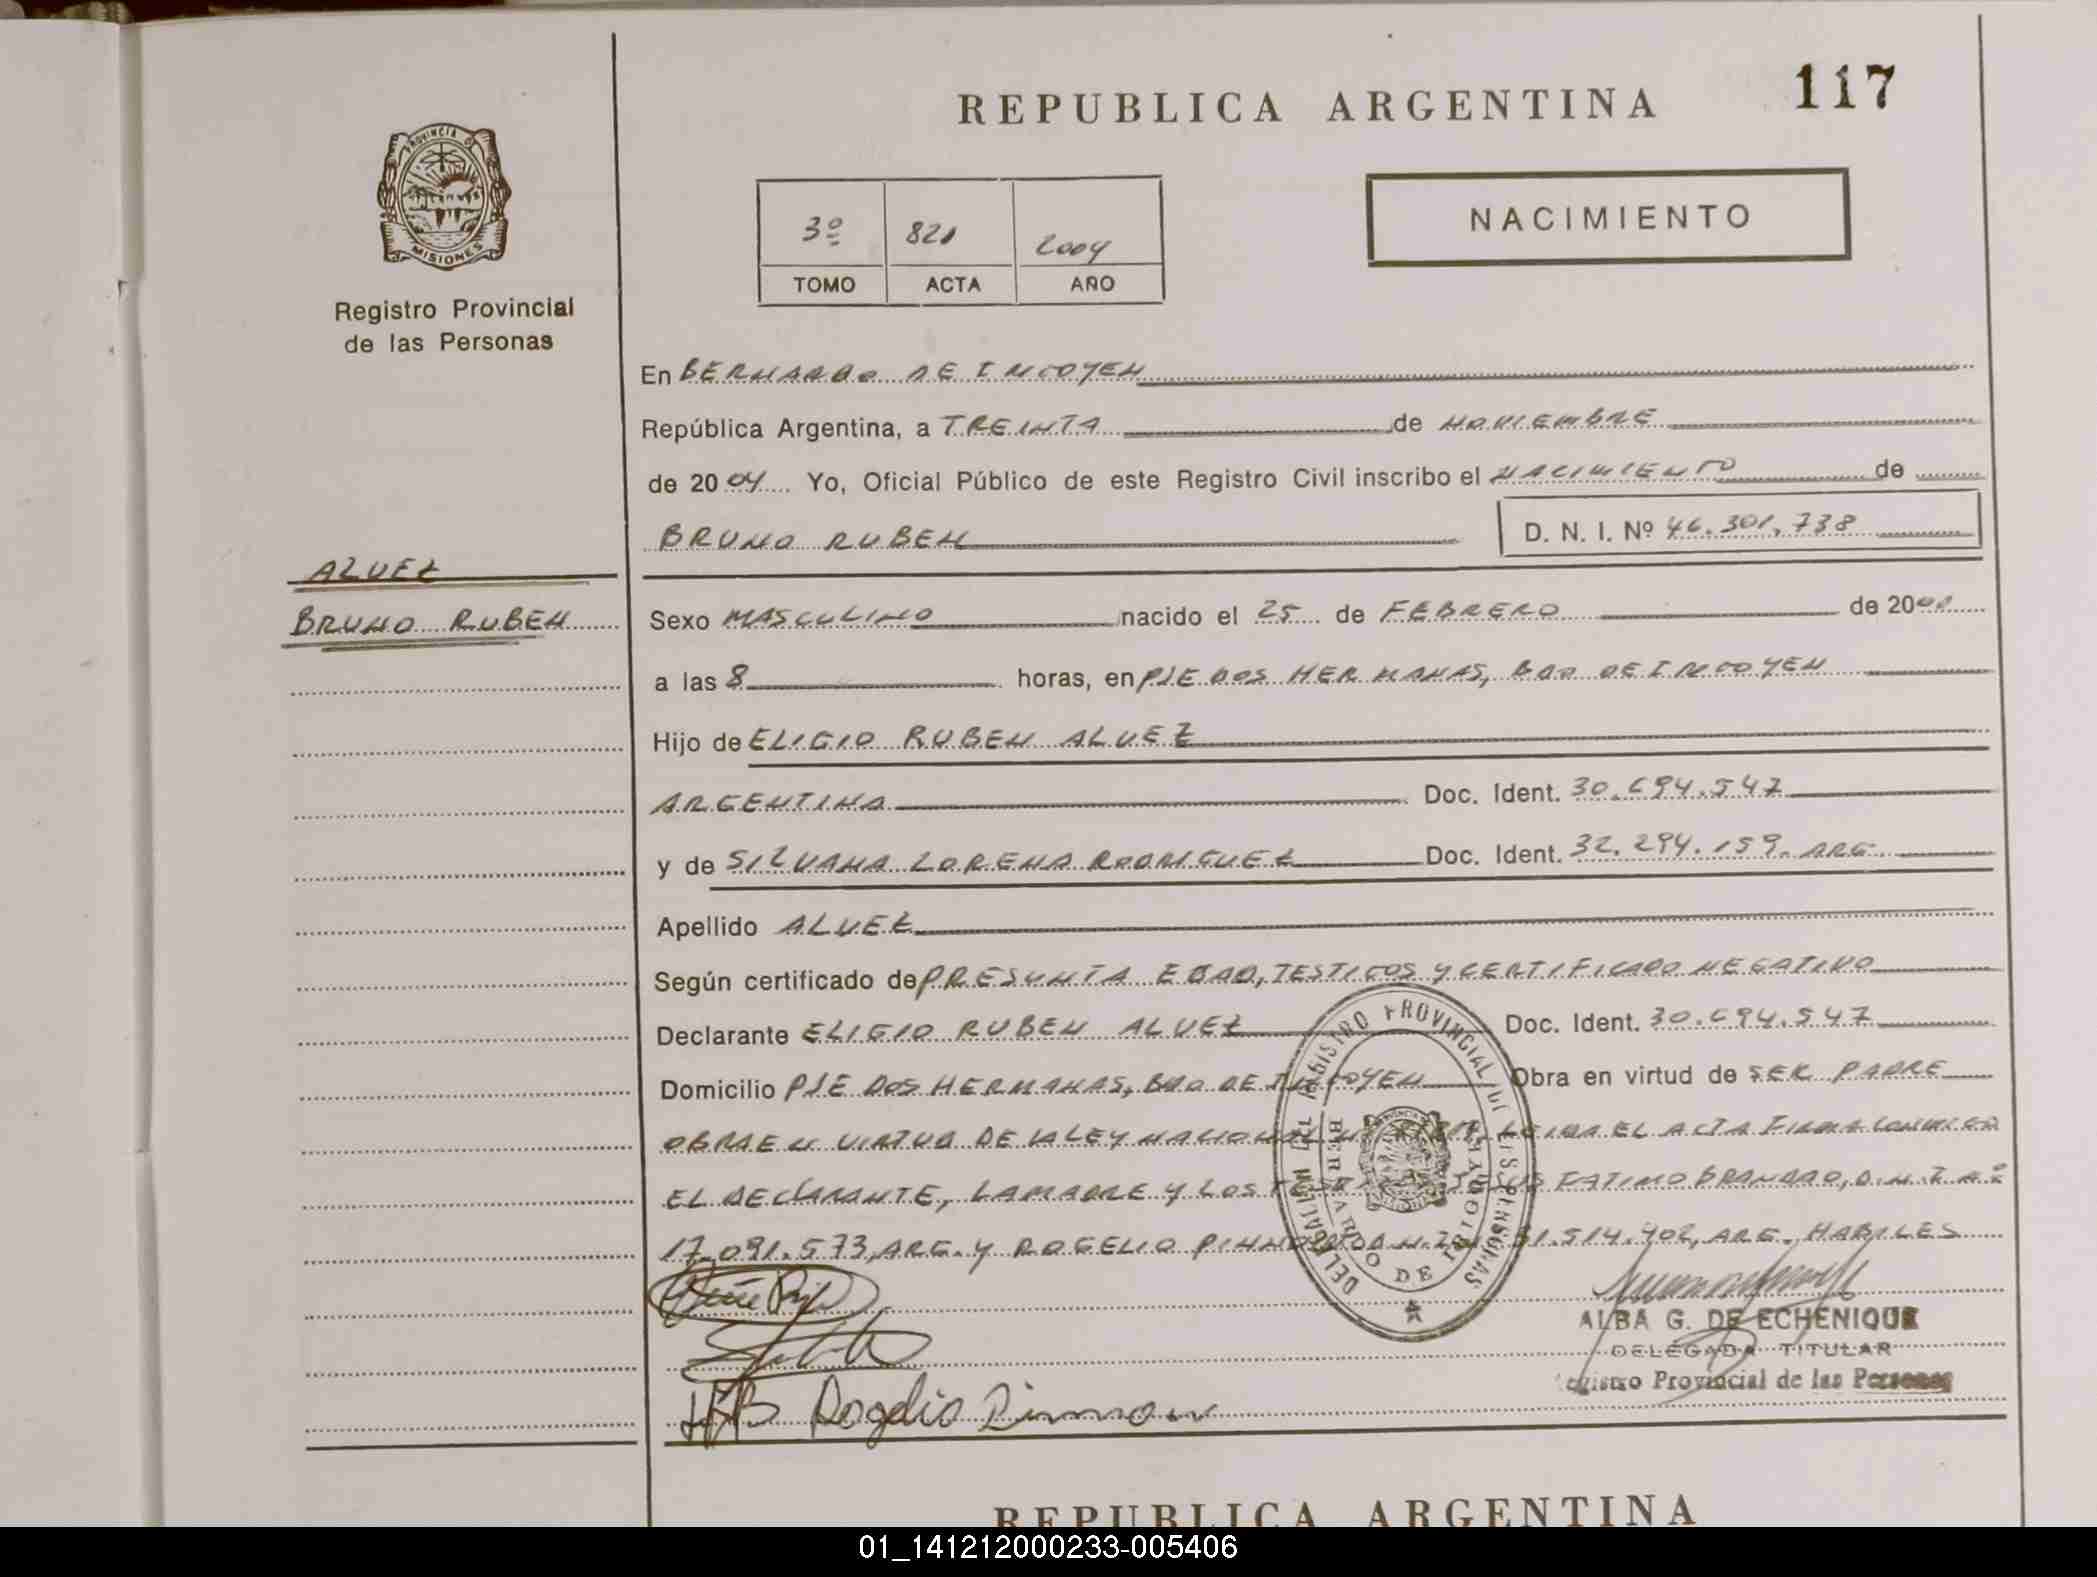 REPUBLICA ARGENTINA
117
PROVINCIA DE
MISIONES
Registro Provincial
de las Personas
3º 821 2004
TOMO ACTA AÑO
NACIMIENTO
En BERNARDO DE IRIGOYEN
República Argentina, a TREINTA de NOVIEMBRE
de 2004 Yo, Oficial Público de este Registro Civil inscribo el NACIMIENTO de
BRUNO RUBEN D. N. I. Nº 46.301.738
ALVEZ
BRUNO RUBEN
Sexo MASCULINO nacido el 25 de FEBRERO de 20
a las 8 horas, en PJE DOS HERMANAS, BDO DE IRIGOYEN
Hijo de ELIGIO RUBEN ALVEZ
ARGENTINA Doc. Ident. 30.694.547
y de SILVANA LORENA RODRIGUEZ Doc. Ident. 32.294.159. ARG.
Apellido ALVEZ
Según certificado de PRESUNTA EDAD, TESTIGOS Y CERTIFICADO NEGATIVO
Declarante ELIGIO RUBEN ALVEZ Doc. Ident. 30.694.547
Domicilio PJE DOS HERMANAS, BDO DE IRIGOYEN Obra en virtud de SER PADRE
OBRA EN VIRTUD DE LA LEY NACIONAL LEIDA EL ACTA FIRMA CONMIGO
EL DECLARANTE, LA MADRE Y LOS FATIMO BRANDAO, D.N.I. Nº
17.091.573, ARG. Y ROGELIO 31.514.402, ARG. HABILES
DELEGACION DEL REGISTRO PROVINCIAL DE LAS PERSONAS
BERNARDO DE IRIGOYEN
ALBA G. DE ECHENIQUE
DELEGADA TITULAR
Registro Provincial de las Personas
Rogelio
REPUBLICA ARGENTINA
01_141212000233-005406